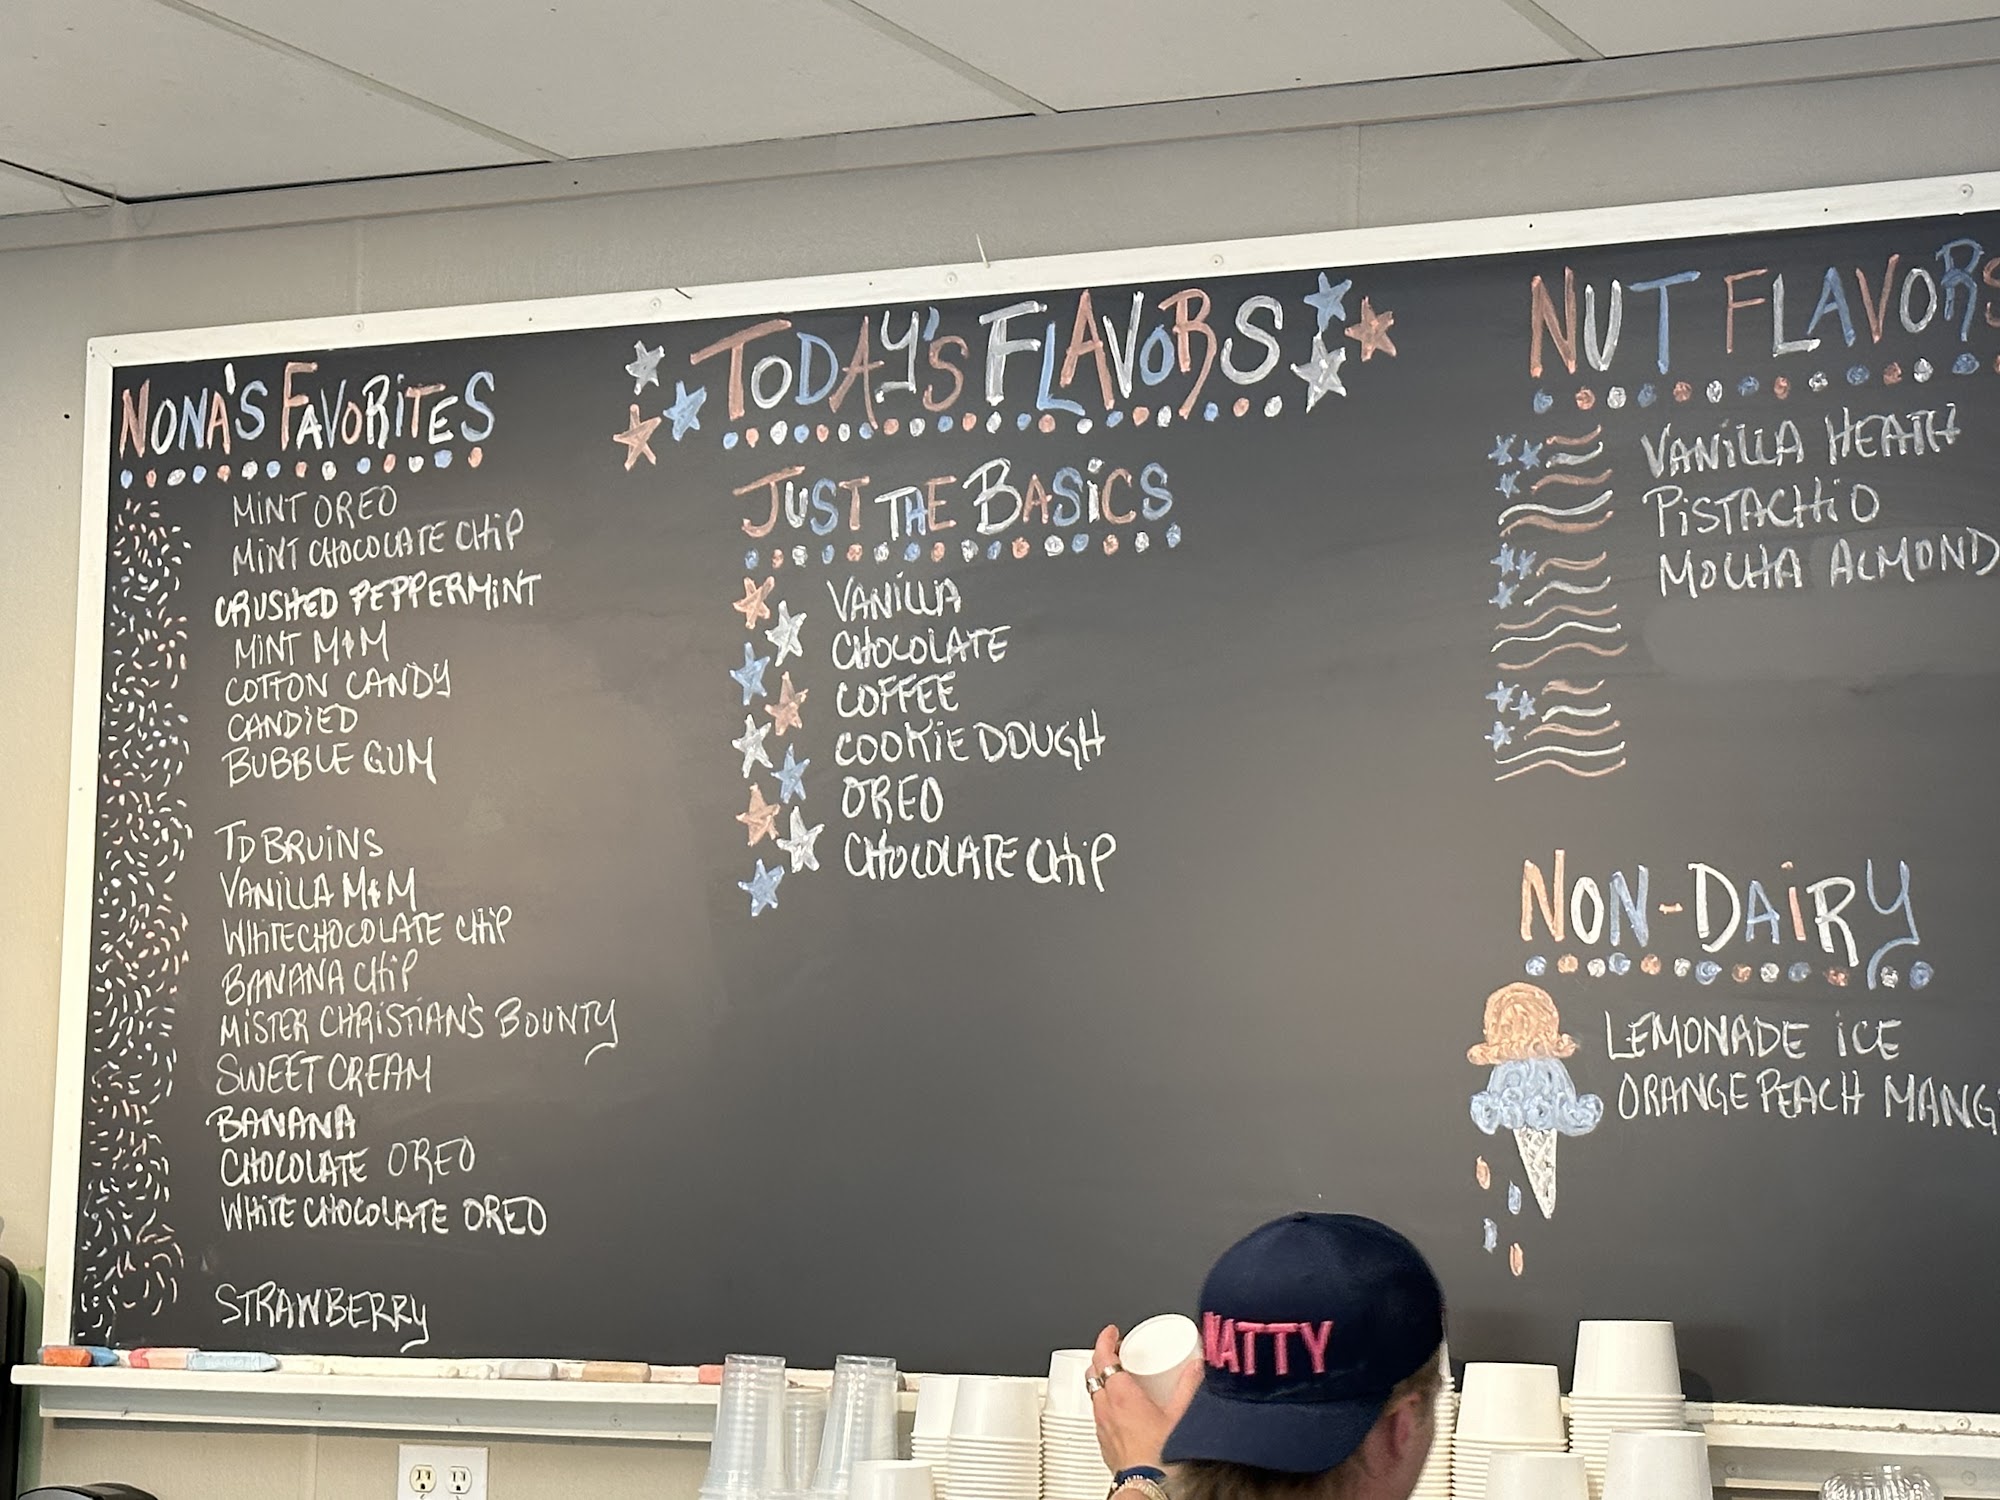 NONA'S FAVORITES
MINT OREO
MINT CHOCOLATE CHIP
CRUSHED PEPPERMINT
MINT M&M
COTTON CANDY
CANDIED
BUBBLE GUM
TD BRUINS
VANILLA M&M
WHITE CHOCOLATE CHIP
BANANA CHIP
MISTER CHRISTIAN'S BOUNTY
SWEET CREAM
BANANA
CHOCOLATE OREO
WHITE CHOCOLATE OREO
STRAWBERRY
TODAY'S FLAVORS
JUST THE BASICS
VANILLA
CHOCOLATE
COFFEE
COOKIE DOUGH
OREO
CHOCOLATE CHIP
NUT FLAVORS
VANILLA HEATH
PISTACHIO
MOCHA ALMOND
NON-DAIRY
LEMONADE ICE
ORANGE PEACH MANG
NATTY